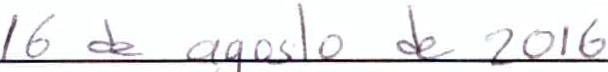 16 de agosto de 2016